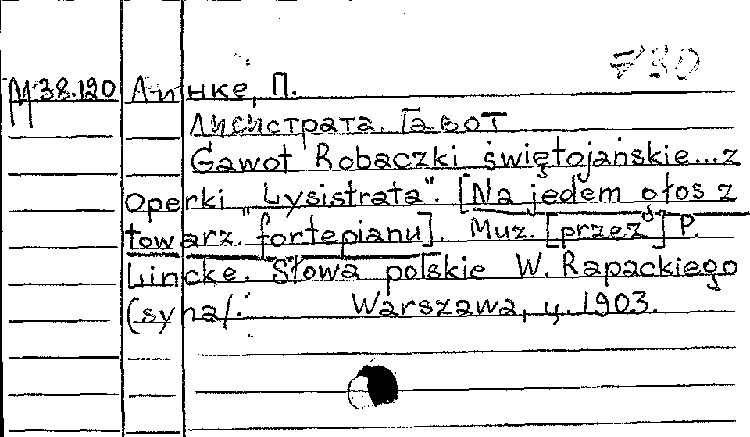 730
М 38.120 Линке, П.
Лисистрата. Гавот
Gawot Robaczki świętojańskie...z
operki „Lysistrata". [Na jedem głos z
towarz. fortepianu]. Muz. [przez] P.
Lincke. Słowa polskie W. Rapackiego
(syna/. Warszawa, ц. 1903.